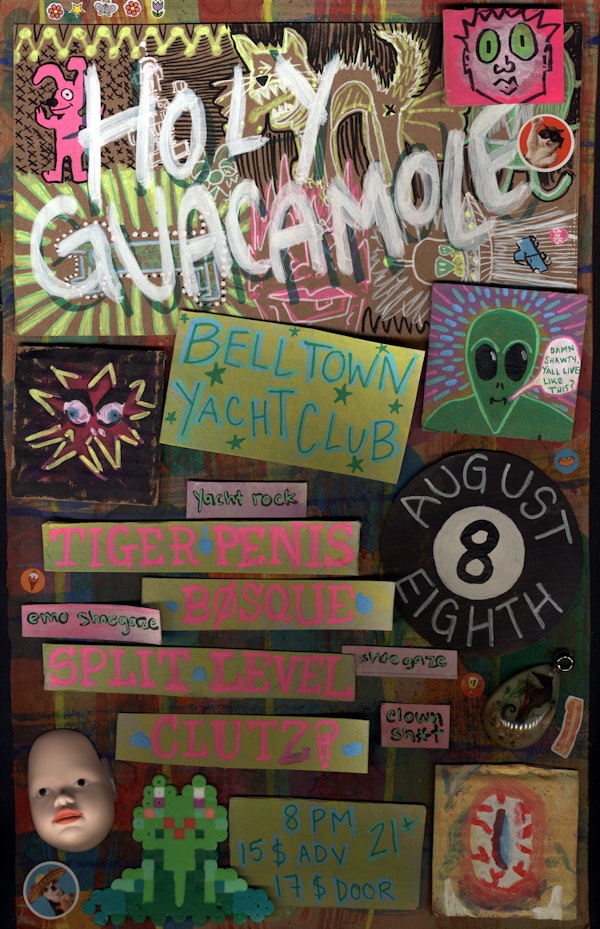 HOLY
GUACAMOLE
BELLTOWN
YACHT CLUB
DAMN
SHAWTY,
YALL LIVE
LIKE
THIS?
AUGUST
8
EIGHTH
yacht rock
TIGER PENIS
BØSQUE
emo shoegaze
SPLIT LEVEL
shoegaze
CLUTZ?
clown
sh*t
8 PM
21+
15$ ADV
17$ DOOR